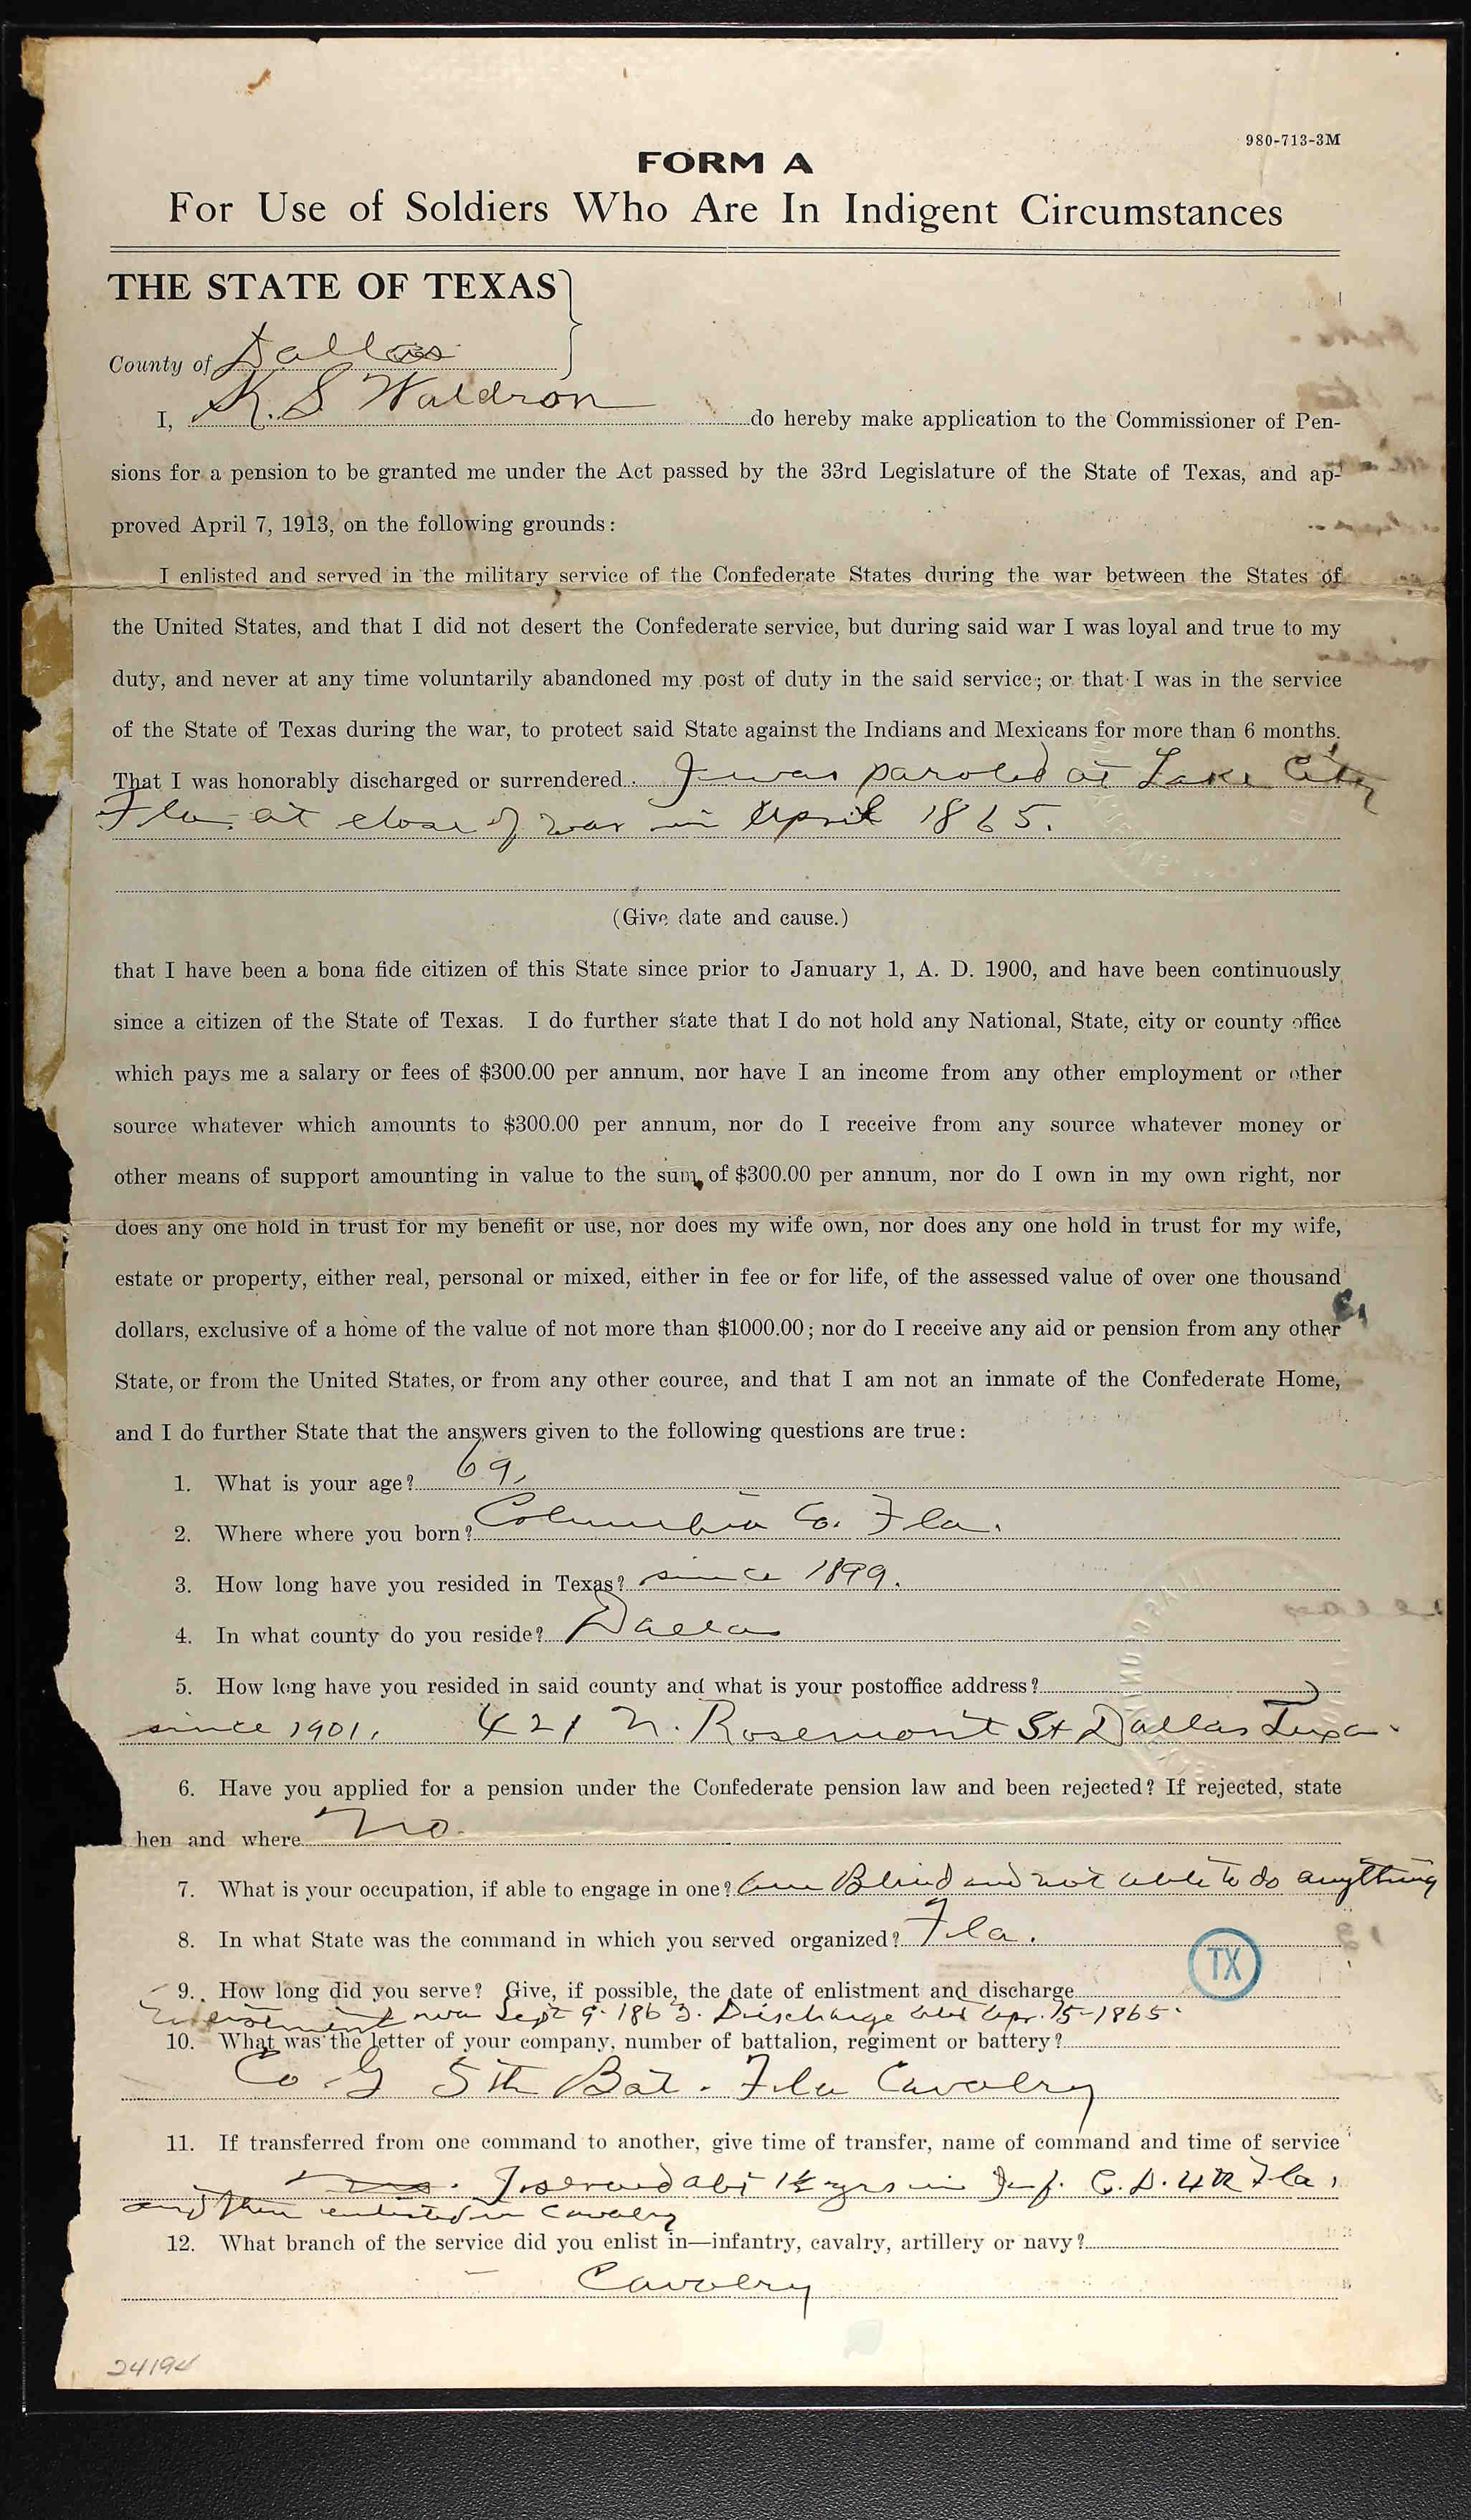 980-713-3M
FORM A
For Use of Soldiers Who Are In Indigent Circumstances
THE STATE OF TEXAS
County of Dallas
I, K. S Waldron do hereby make application to the Commissioner of Pen-
sions for a pension to be granted me under the Act passed by the 33rd Legislature of the State of Texas, and ap-
proved April 7, 1913, on the following grounds:
I enlisted and served in the military service of the Confederate States during the war between the States of
the United States, and that I did not desert the Confederate service, but during said war I was loyal and true to my
duty, and never at any time voluntarily abandoned my post of duty in the said service; or that I was in the service
of the State of Texas during the war, to protect said State against the Indians and Mexicans for more than 6 months.
That I was honorably discharged or surrendered I was paroled at Lake City
Fla. at close of war in April 1865.
(Give date and cause.)
that I have been a bona fide citizen of this State since prior to January 1, A. D. 1900, and have been continuously
since a citizen of the State of Texas. I do further state that I do not hold any National, State, city or county office
which pays me a salary or fees of $300.00 per annum, nor have I an income from any other employment or other
source whatever which amounts to $300.00 per annum, nor do I receive from any source whatever money or
other means of support amounting in value to the sum of $300.00 per annum, nor do I own in my own right, nor
does any one hold in trust for my benefit or use, nor does my wife own, nor does any one hold in trust for my wife,
estate or property, either real, personal or mixed, either in fee or for life, of the assessed value of over one thousand
dollars, exclusive of a home of the value of not more than $1000.00; nor do I receive any aid or pension from any other
State, or from the United States, or from any other cource, and that I am not an inmate of the Confederate Home,
and I do further State that the answers given to the following questions are true:
1. What is your age? 69,
2. Where where you born? Columbia Co. Fla.
3. How long have you resided in Texas? since 1899.
4. In what county do you reside? Dallas
5. How long have you resided in said county and what is your postoffice address?
since 1901, 421 N. Rosemont St Dallas Texa
6. Have you applied for a pension under the Confederate pension law and been rejected? If rejected, state
hen and where No.
7. What is your occupation, if able to engage in one? am Blind and not able to do anything
8. In what State was the command in which you served organized? Fla.
TX
9. How long did you serve? Give, if possible, the date of enlistment and discharge
Enlistment was Sept 9- 1863. Discharge Apr. 15-1865.
10. What was the letter of your company, number of battalion, regiment or battery?
Co. G 5th Bat. Fla Cavalry
11. If transferred from one command to another, give time of transfer, name of command and time of service
I served abt 1½ yrs in Inf. C. D. 4th Fla,
and then enlisted in Cavalry
12. What branch of the service did you enlist in—infantry, cavalry, artillery or navy?
Cavalry
24194